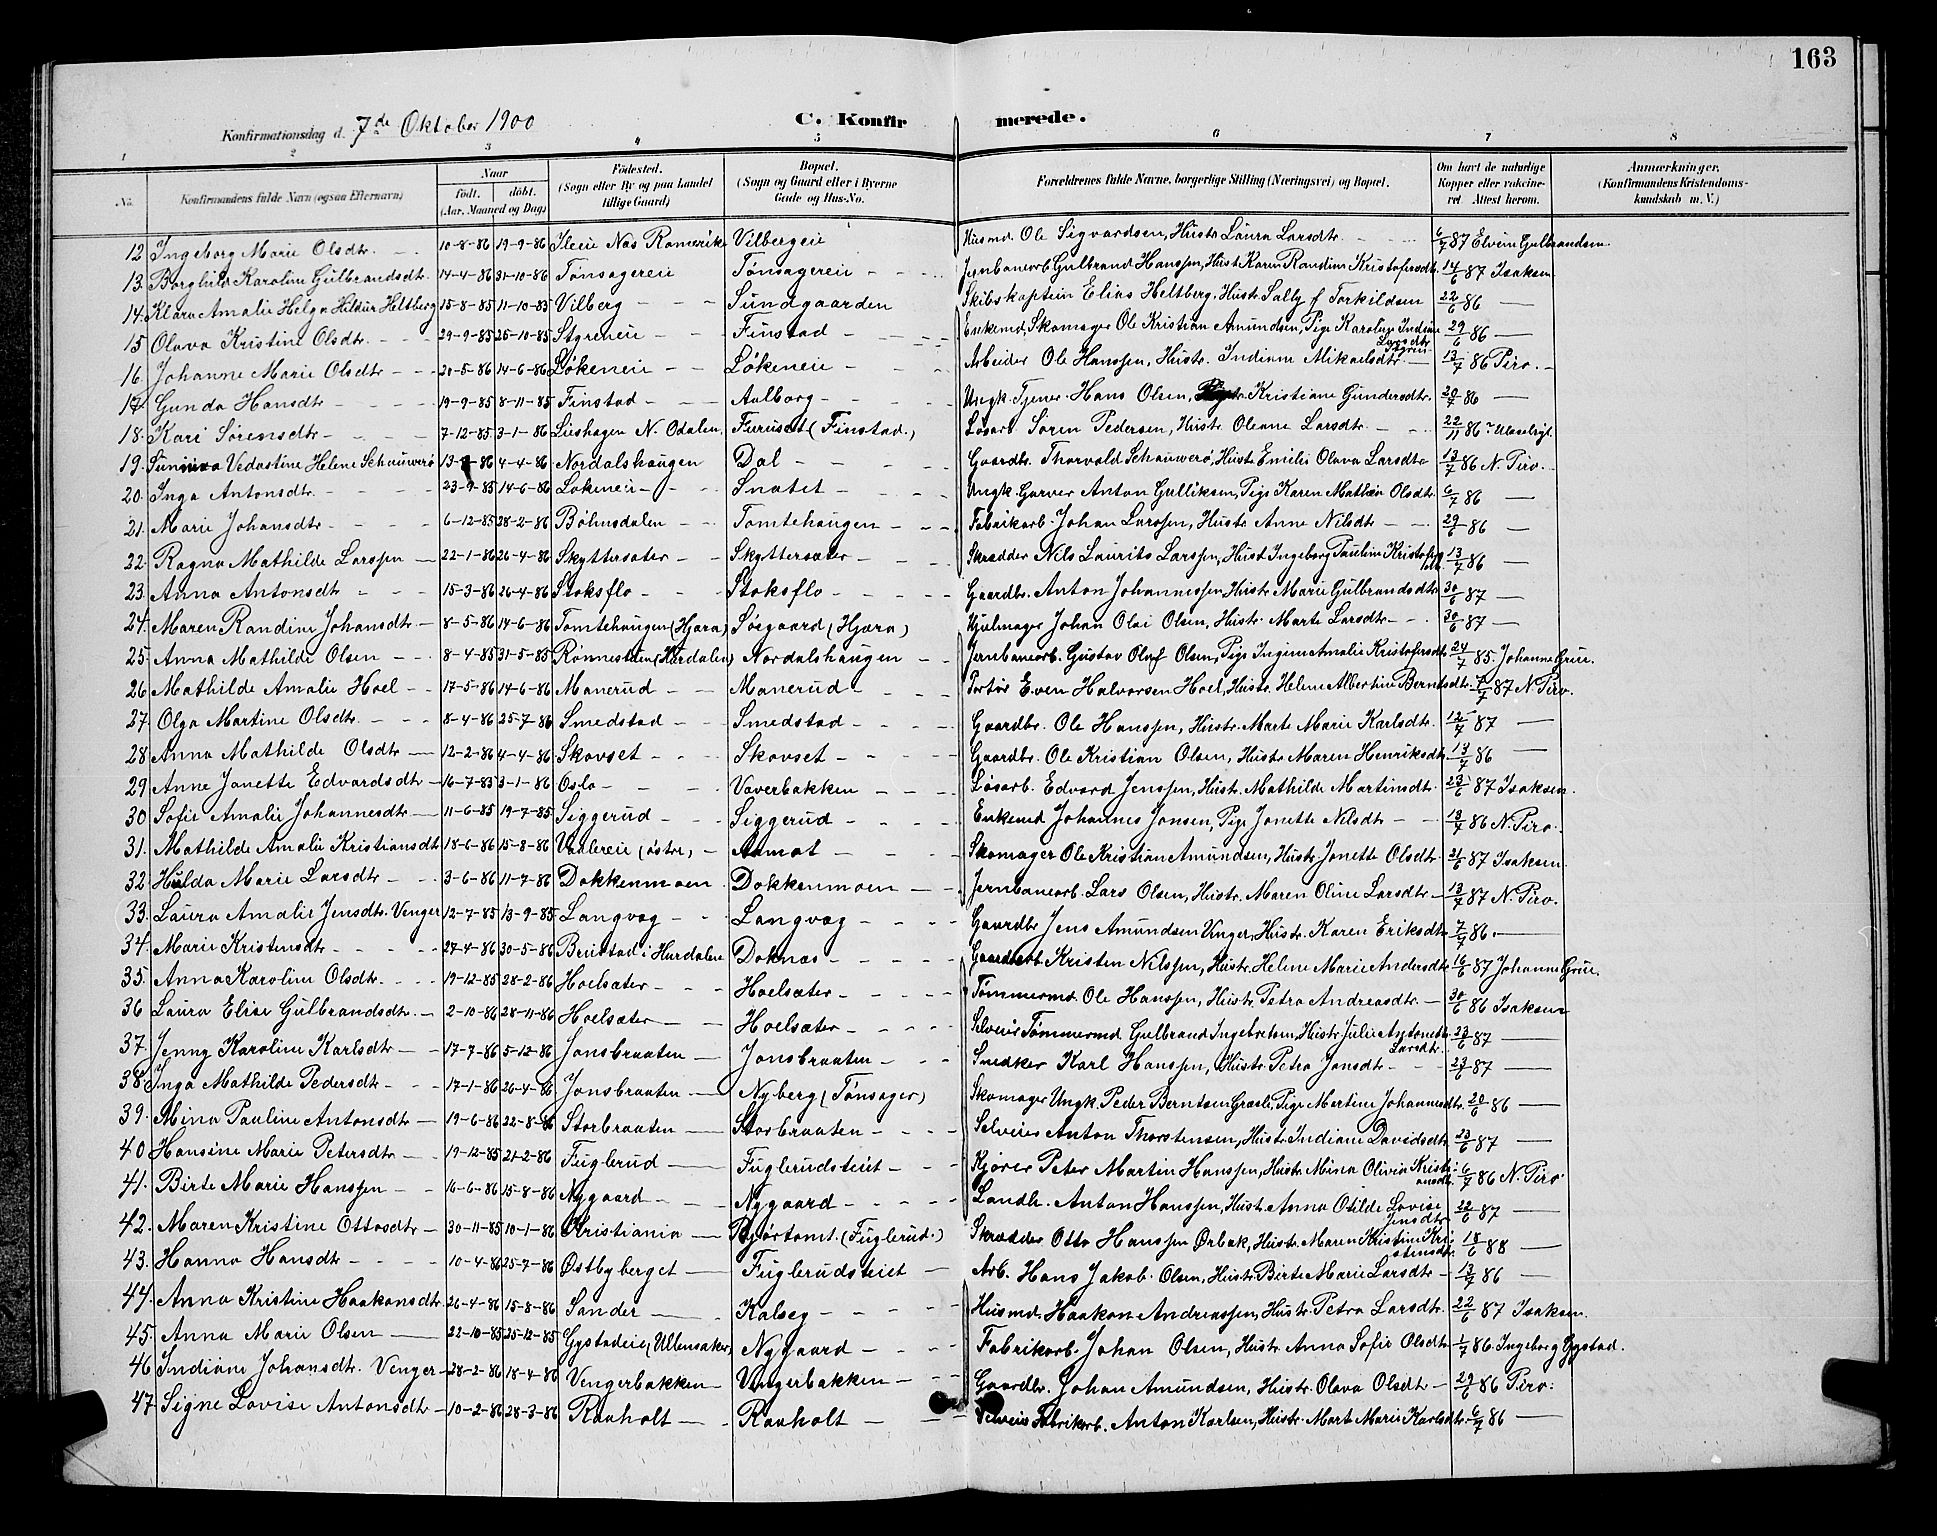 163
Konfirmationsdag d. 7de Oktober 1900 C. Konfirmerede.
1 2 3 4 5 6 7 8
No. Konfirmandens fulde Navn (ogsaa Efternavn) Naar født. døbt. (Aar, Maaned og Dag) Fødested. (Sogn eller By og paa Landet tillige Gaard) Bopæl. (Sogn og Gaard eller i Byerne Gade og Hus-No. Forældrenes fulde Navne, borgerlige Stilling (Næringsvei) og Bopæl. Om havt de naturlige Kopper eller vakcineret Attest herom. Anmærkninger, (Konfirmandens Kristendomskundskab m. V.)
12 Ingeborg Marie Olsdtr. 10-8-86 19-9-86 Ileie Nas Romerike Vilbergeie Husmd. Ole Sigvardsen, Hustr. Laura Larsdtr. 6/7 87 Elvine Gulbrandsen
13. Borghild Karoline Gulbrandsdt. 14-4-86 31-10-86 Tønsagereie Tønsagereie Jernbanearb. Gulbrand Hanssen, Hust. Karen Randine Kristofersdtr. 14/6 87 Isaksen
14. Klara Amalie Helga Heltberg 15-8-85 11-10-85 Vilberg Sundgaarden Skibskaptein Elias Heltberg, Hustr. Sally f Torkildsen 22/6 86 —
15 Olava Kristine Olsdtr. 29-9-85 25-10-85 Styreneie Finstad Enkemd. Skomager Ole Kristian Amundsen, Pige Karoline Indiane Larsdtr. 29/6 86 —
16. Johanne Marie Olsdtr 20-5-86 14-6-86 Løkeneie Løkeneie Arbeider Ole Hanssen, Hustr. Indiane Mikaelsdtr. 13/7 86 Piro.
17. Gunda Hansdtr 19-9-85 8-11-85 Finstad Aalborg Ungk. Tjener Hans Olsen, Kristiane Gundersdtr. 20/7 86 —
18. Kari Sørensdtr 7-12-85 3-1-86 Lieshagen N. Odalen Furuset (Finstad.) Løsarb. Søren Pedersen, Hustr. Oleane Larsdtr. 22/11 86
19. Sunniva Vedastine Helene Schauwerø 13-86 4-4-86 Nordalshaugen Dal Gaardbr. Thorvald Schauwerø, Hustr. Emilie Olava Larsdtr 13/7 86 N. Piro.
20. Inga Antonsdtr. 23-9-85 14-6-86 Løkeneie Snatet Ungk. Garver Anton Gulliksen, Pige Karen Mathea Olsdtr. 6/7 86 —
21. Marie Johansdtr 6-12-85 28-2-86 Bøhnsdalen Tomtehaugen Fabrikarb. Johan Larssen, Hustr. Anne Nilsdtr 29/6 86 —
22. Ragna Mathilde Larssen 22-1-86 26-4-86 Skyttersæter Skyttersæter Skrædder Nils Laurits Larssen, Hust. Ingeborg Pauline Kristofersdtr. 13/7 86 —
23. Anna Antonsdt 15-3-86 26-4-86 Stoksflo Stoksflo Gaardbr. Anton Johannessen, Hustr. Marie Gulbrandsdtr 30/6 87 —
24. Maren Randine Johansdtr 8-5-86 14-6-86 Tomtehaugen (Hjæra) Søsgaard (Hjæra) Hjulmager Johan Olai Olsen, Hustr. Marte Larsdtr 30/6 87 —
25. Anna Mathilde Olsen 8-4-85 31-5-85 Rønnestuen (Hurdalen) Nordalshaugen Jernbanearb. Gustav Oluf Olsen, Pige Ingine Amalie Kristofersdtr. 24/7 85. Johanne Grue.
26 Mathilde Amalie Hoel 17-5-86 14-6-86 Manerud Manerud Portør Even Halvorsen Hoel, Hustr. Helene Albertine Berntsdtr. 7/7 87 N Piro.
27. Olga Martine Olsdtr. 8-4-86 25-7-86 Smedstad Smedstad Gaardbr. Ole Hanssen, Hustr. Marte Marie Karlsdtr. 12/7 87 —
28 Anna Mathilde Olsdtr 12-2-86 4-4-86 Skovset Skovset Gaardbr. Ole Kristian Olsen, Hustr. Maren Henriksdtr. 13/7 86 —
29 Anne Janette Edvardsdtr 16-7-85 3-1-86 Oslo Vaverbakken Løsarb. Edvard Jenssen, Hustr. Mathilde Martinsdtr. 23/6 87 Isaksen.
30 Sofie Amalie Johannesdtr 11-6-85 19-7-85 Siggerud Siggerud Enkemd Johannes Jonsen, Pige Jonette Nilsdtr 13/7 86 N. Piro.
31. Mathilde Amalie Kristiansdt 18-6-86 15-8-86 Vaalereie (østre) Aamot Skomager Ole Kristian Amundsen, Hustr. Jonette Olsdtr. 21/6 87 Isaksen.
32 Hulda Marie Larsdtr 3-6-86 11-7-86 Dokkenmoen Dokkenmoen Jernbanearb. Lars Olsen, Hustr. Maren Oline Larsdtr 13/7 87 N. Piro.
33. Laura Amalie Jensdtr. Venger 12-7-85 13-9-85 Langvag Langvag Gaardbr Jens Amundsen Venger, Hustr. Karen Eriksdtr. 7/7 86. —
34. Marie Kristensdtr 27-4-86 30-5-86 Beistad i Hurdalen Doknas Gaardarb. Kristen Nilssen, Hustr. Helene Marie Andersdtr 16/6 87 Johanne Grue.
35. Anna Karoline Olsdtr. 19-12-85 28-2-86 Hoelsæter Hoelsæter Tømmermd. Ole Hanssen, Hustr. Petra Andreasdtr. 30/6 86 Isaksen
36 Laura Elise Gulbrandsdtr. 2-10-86 28-11-86 Hoelsæter Hoelsæter Selveier Tømmermd Gulbrand Ingebretsen, Hustr. Julie Antonette Larsdtr. 23/6 87 —
37. Jenny Karoline Karlsdtr 17-7-86 5-12-86 Jonsbraaten Jonsbraaten Snedker Karl Hanssen, Hustr. Petra Jonsdtr 23/6 87 —
38. Inga Mathilde Pedersdtr 17-1-86 26-4-86 Jonsbraaten Nyberg (Tønsager) Skomager Ungk. Peder Berntsen Græsli, Pige Martine Johannesdtr. 20/6 86 —
39. Mina Pauline Antonsdtr 19-6-86 22-8-86 Storbraaten Storbraaten Selveier Anton Thorstensen, Hustr. Indiane Davidsdtr 23/6 87 —
40 Hansine Marie Petersdtr 19-12-85 21-2-86 Fuglerud Fuglerudsteiet Kjører Peter Martin Hanssen, Hustr. Mina Olivia Kristiansdtr. 6/7 86 N. Piro
41. Birte Marie Hanssen 16-6-86 15-8-86 Nygaard Nygaard Landh. Anton Hanssen, Hustr. Anna Otilde Lovise Jensdtr 22/6 87 —
42. Maren Kristine Ottosdtr 30-11-85 10-1-86 Kristiania Bjørtomt. (Fuglerud.) Skrædder Otto Hanssen Ørbæk, Hustr. Maren Kristine Kristensdtr. 18/6 88 —
43. Hanna Hansdtr 10-4-86 25-7-86 Østbyberget Fuglerudsteiet Arb. Hans Jakob Olsen, Hustr. Birte Marie Larsdtr 13/7 86 —
44. Anna Kristine Haakonsdtr. 26-4-86 15-8-86 Sander Kalseg Husmd. Haakon Andreassen, Hustr. Petra Larsdtr. 22/6 87 Isaksen.
45. Anna Marie Olsen 22-10-85 25-12-85 Gystadeie (Ullensaker) Nygaard Fabrikarb. Johan Olsen, Hustr. Anna Sofie Olsdtr 1/7 86 Ingeborg Gystad.
46 Indiane Johansdtr. Venger 28-2-86 18-4-86 Vengerbakken Vengerbakken Gaardbr. Johan Amundsen, Hustr. Olava Olsdtr 29/6 86 Piro.
47. Signe Lovise Antonsdtr 10-2-86 28-3-86 Raaholt Raaholt Selveier Fabrikarb. Anton Karlsen, Hustr. Mart Marie Karlsdtr. 6/7 86 —